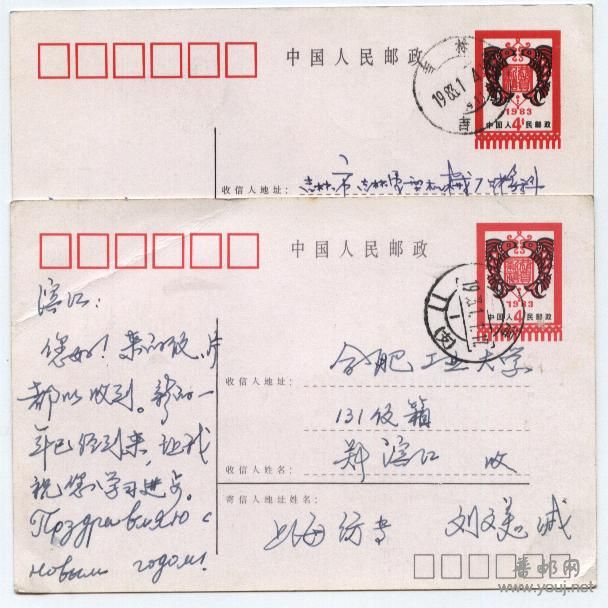 中国人民邮政
吉林
1983.1
1983
中国人民邮政
4
收信人地址：吉林市吉林
中国人民邮政
1983
中国人民邮政
4
滨江：
您好！来的信，片
都以收到。新的一
年已经到来，让我
祝您学习进步。
Поздравляю с
новым годом!
收信人地址：合肥工业大学
131信箱
收信人姓名：郑滨江 收
寄信人地址姓名：
上海纺专 刘文美 诚
华邮网
www.youj.net